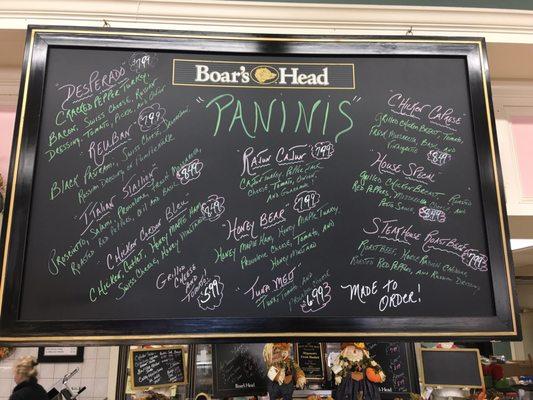 Boar's Head
"PANINIS"
"DESPERADO" 7.99
CRACKED PEPPER TURKEY,
BACON, SWISS CHEESE, RUSSIAN
DRESSING, TOMATO, PICKLE AND ONION
REUBAN 7.99
BLACK PASTRAMI, SWISS CHEESE,
RUSSIAN DRESSING
ITALIAN STALLION 8.99
PROSCIUTTO, SALAMI, PROVOLONE, FRESH MOZZARELLA,
ROASTED RED PEPPERS, OIL AND BASIL
CHICKEN CARDON BLEU 8.99
CHICKEN CUTLET, HONEY MAPLE HAM,
SWISS CHEESE, HONEY MUSTARD
GRILLED
CHEESE
AND TOMATO 5.99
RAJUN CAJUN 7.99
CAJUN TURKEY,
CHEESE, TOMATO, ONION
AND
HONEY BEAR 7.99
HONEY MAPLE HAM, MAPLE TURKEY,
PROVOLONE CHEESE, TOMATO, AND
HONEY MUSTARD
TUNA MELT
TUNA, TOMATO AND
CHEESE 6.99
CHICKEN CAPRESE
GRILLED CHICKEN BREAST, TOMATO,
FRESH MOZZARELLA, BASIL AND
VINAIGRETTE 8.49
HOUSE SPECIAL
GRILLED CHICKEN BREAST, ROASTED
RED PEPPERS, AND
PESTO SAUCE
STEAKHOUSE ROAST BEEF
ROAST BEEF,
ROASTED RED PEPPERS, AND RUSSIAN DRESSING 7.99
MADE TO
ORDER!
Boar's Head